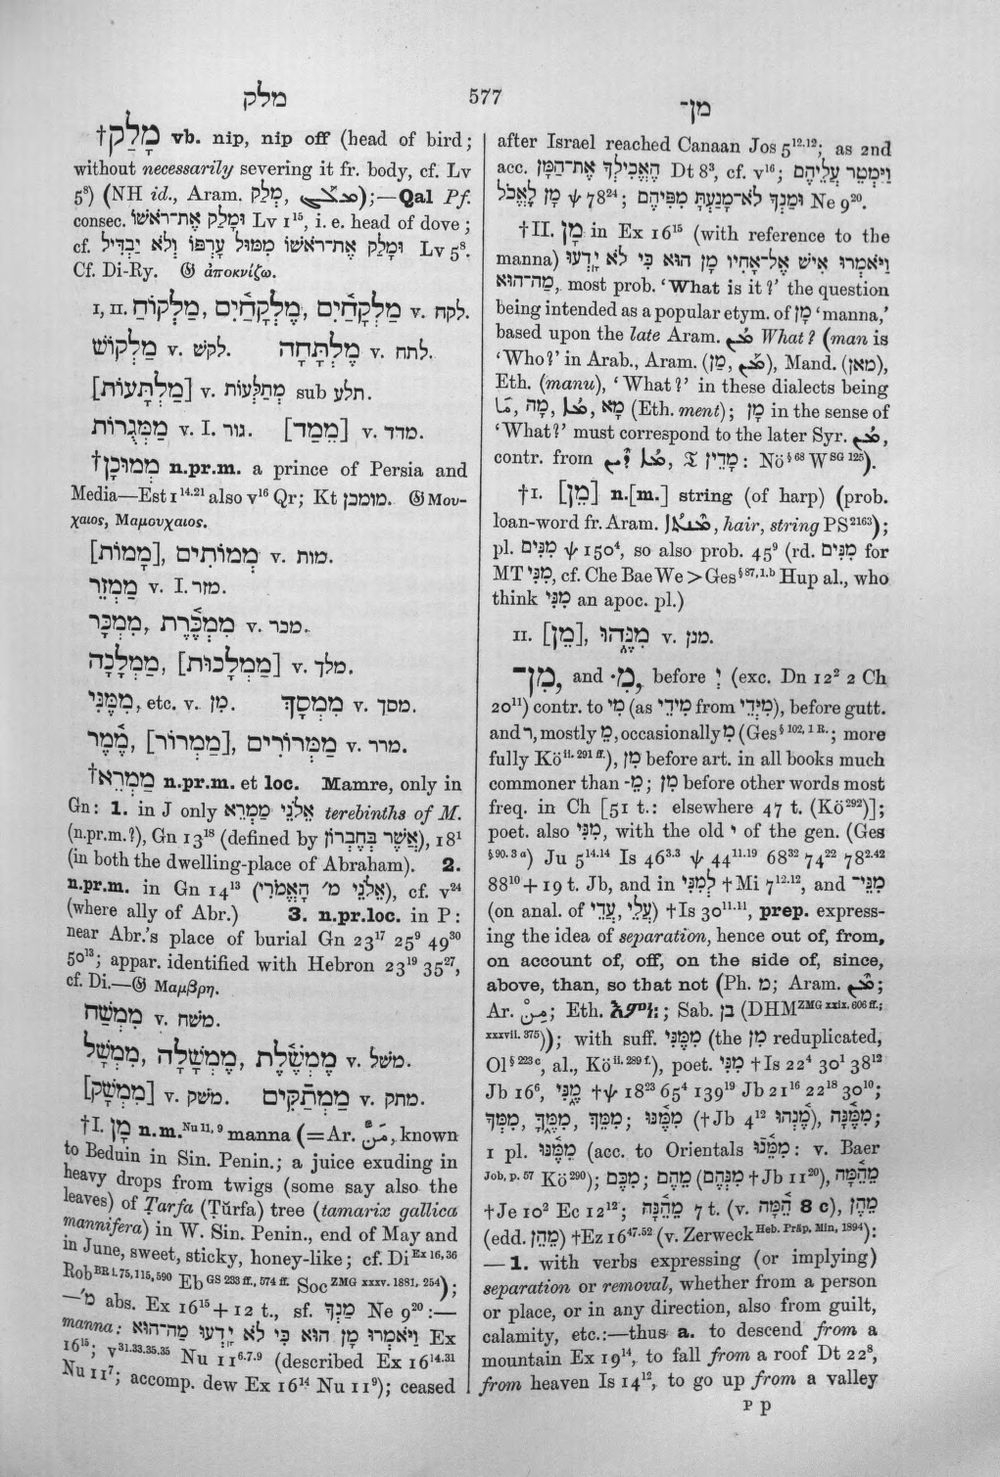 מלק
577
מן־
†מָלַק vb. nip, nip off (head of bird;
without necessarily severing it fr. body, cf. Lv
5⁸) (NH id., Aram. מְלַק,);—Qal Pf.
consec. וּמָלַק אֶת־רֹאשׁוֹ Lv 1¹⁵, i. e. head of dove;
cf. וּמָלַק אֶת־רֹאשׁוֹ מִמּוּל עָרְפּוֹ וְלֹא יַבְדִּיל Lv 5⁸.
Cf. Di-Ry. 𝔊 ἀποκνίζω.
I, II. מַלְקֹחַיִם, מֶלְקָחַיִם, מַלְקוֹחַ v. לקח.
מַלְקוֹשׁ v. לקשׁ. מֶלְתָּחָה v. לתח.
[מַלְתָּעוֹת] v. מְתַלְּעוֹת sub תלע.
מַמְּגֻרוֹת v. I. גור. [מֵמַד] v. מדד.
†מְמוּכָן n.pr.m. a prince of Persia and
Media—Est 1¹⁴·²¹ also v¹⁶ Qr; Kt מומכן. 𝔊 Μου-
χαιος, Μαμουχαιος.
[מָמוֹת], מְמוֹתִים v. מות.
מַמְזֵר v. I. מזר.
מִמְכָּר, מִמְכֶּרֶת v. מכר.
מַמְלָכָה, [מַמְלָכוּת] v. מלך.
מִמֶּנִּי, etc. v. מִן. מִמְסָךְ v. מסך.
מֶמֶר, [מַמְרוֹר], מַמְּרוֹרִים v. מרר.
†מַמְרֵא n.pr.m. et loc. Mamre, only in
Gn: 1. in J only אֵלֹנֵי מַמְרֵא terebinths of M.
(n.pr.m.?), Gn 13¹⁸ (defined by אֲשֶׁר בְּחֶבְרוֹן), 18¹
(in both the dwelling-place of Abraham). 2.
n.pr.m. in Gn 14¹³ (אֵלֹנֵי מ׳ הָאֱמֹרִי), cf. v²⁴
(where ally of Abr.) 3. n.pr.loc. in P:
near Abr.'s place of burial Gn 23¹⁷ 25⁹ 49³⁰
50¹³; appar. identified with Hebron 23¹⁹ 35²⁷,
cf. Di.—𝔊 Μαμβρη.
מִמְשַׁח v. משׁח.
מִמְשָׁל, מֶמְשָׁלָה, מֶמְשֶׁלֶת v. משׁל.
[מִמְשָׁק] v. משׁק. מַמְתַקִּים v. מתק.
†I. מָן n.m.ᴺᵘ ¹¹,⁹ manna (=Ar. مَنّ, known
to Beduin in Sin. Penin.; a juice exuding in
heavy drops from twigs (some say also the
leaves) of Ṭarfa (Ṭŭrfa) tree (tamarix gallica
mannifera) in W. Sin. Penin., end of May and
in June, sweet, sticky, honey-like; cf. Di Ex 16, 36
Rob BR i. 75, 115, 590 Eb GS 233 ff., 574 ff. Soc ZMG xxxv. 1881, 254);
—מ׳ abs. Ex 16¹⁵+12 t., sf. מַנְךָ Ne 9²⁰:—
manna: וַיֹּאמְרוּ מָן הוּא כִּי לֹא יָדְעוּ מַה־הוּא Ex
16¹⁵; v³¹·³³·³⁵·³⁵ Nu 11⁶·⁷·⁹ (described Ex 16¹⁴·³¹
Nu 11⁷; accomp. dew Ex 16¹⁴ Nu 11⁹); ceased
after Israel reached Canaan Jos 5¹²·¹²; as 2nd
acc. הֶאֱכִילְךָ אֶת־הַמָּן Dt 8³, cf. v¹⁶; וַיַּמְטֵר עֲלֵיהֶם
מָן לֶאֱכֹל ψ 78²⁴; וּמַנְךָ לֹא־מָנַעְתָּ מִפִּיהֶם Ne 9²⁰.
†II. מָן in Ex 16¹⁵ (with reference to the
manna) וַיֹּאמְרוּ אִישׁ אֶל־אָחִיו מָן הוּא כִּי לֹא יָדְעוּ
מַה־הוּא, most prob. 'What is it?' the question
being intended as a popular etym. of מָן 'manna,'
based upon the late Aram. What? (man is
'Who?' in Arab., Aram. (מַן,), Mand. (מאן),
Eth. (manu), 'What?' in these dialects being
مَا, מָה, מָא (Eth. ment); מָן in the sense of
'What?' must correspond to the later Syr.
contr. from 𝔗 מָדֵין: Nö § 68 W SG 125).
†I. [מֵן] n.[m.] string (of harp) (prob.
loan-word fr. Aram. hair, string PS²¹⁶³);
pl. מִנִּים ψ 150⁴, so also prob. 45⁹ (rd. מִנִּים for
MT מִנִּי, cf. Che Bae We > Ges § 87, 1. b Hup al., who
think מִנִּי an apoc. pl.)
II. [מֵן], מִנֵּהוּ v. מנן.
מִן־, and ·מִ, before יְ (exc. Dn 12² 2 Ch
20¹¹) contr. to מִי (as מִידֵי from מִיְּדֵי), before gutt.
and ר, mostly מֵ, occasionally מִ (Ges § 102, 1 R.; more
fully Kö ii. 291 ff.), מִן before art. in all books much
commoner than ·מֵ; מִן before other words most
freq. in Ch [51 t.: elsewhere 47 t. (Kö²⁹²)];
poet. also מִנִּי, with the old י of the gen. (Ges
§ 90. 3 a) Ju 5¹⁴·¹⁴ Is 46³·³ ψ 44¹¹·¹⁹ 68³² 74²² 78²·⁴²
88¹⁰+19 t. Jb, and in לְמִנִּי †Mi 7¹²·¹², and מִנֵּי־
(on anal. of עֲלֵי, עֲדֵי) †Is 30¹¹·¹¹, prep. express-
ing the idea of separation, hence out of, from,
on account of, off, on the side of, since,
above, than, so that not (Ph. מ; Aram.
Ar. مِنْ; Eth. እምነ:; Sab. בן (DHM ZMG xxix. 606 ff.;
xxxvii. 375)); with suff. מִמֶּנִּי (the מִן reduplicated,
Ol § 223 c, al., Kö ii. 289 f.), poet. מִנִּי †Is 22⁴ 30¹ 38¹²
Jb 16⁶, מֶנִּי †ψ 18²³ 65⁴ 139¹⁹ Jb 21¹⁶ 22¹⁸ 30¹⁰;
מִמְּךָ, מִמֶּךָּ, מִמֵּךְ; מִמֶּנּוּ (†Jb 4¹² מֶנְהוּ), מִמֶּנָּה;
1 pl. מִמֶּנּוּ (acc. to Orientals מִמֵּנוּ: v. Baer
Job, p. 57 Kö²⁹⁰); מִכֶּם; מֵהֶם (מִנְּהֶם †Jb 11²⁰), מֵהֵמָּה
†Je 10² Ec 12¹²; מֵהֵנָּה 7 t. (v. הֵמָּה 8 c), מֵהֶן
(edd. מֵהֵן) †Ez 16⁴⁷·⁵² (v. Zerweck Heb. Präp. Min, 1894):
—1. with verbs expressing (or implying)
separation or removal, whether from a person
or place, or in any direction, also from guilt,
calamity, etc.:—thus a. to descend from a
mountain Ex 19¹⁴, to fall from a roof Dt 22⁸,
from heaven Is 14¹², to go up from a valley
P p